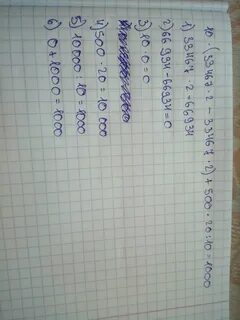 10 · (33467 · 2 - 33467 · 2) + 500 · 20 : 10 = 1000
1) 33467 · 2 - 66934
2) 66934 - 66934 = 0
3) 10 · 0 = 0
4) 500 · 20 = 10 000
5) 10000 : 10 = 1000
6) 0 + 1000 = 1000